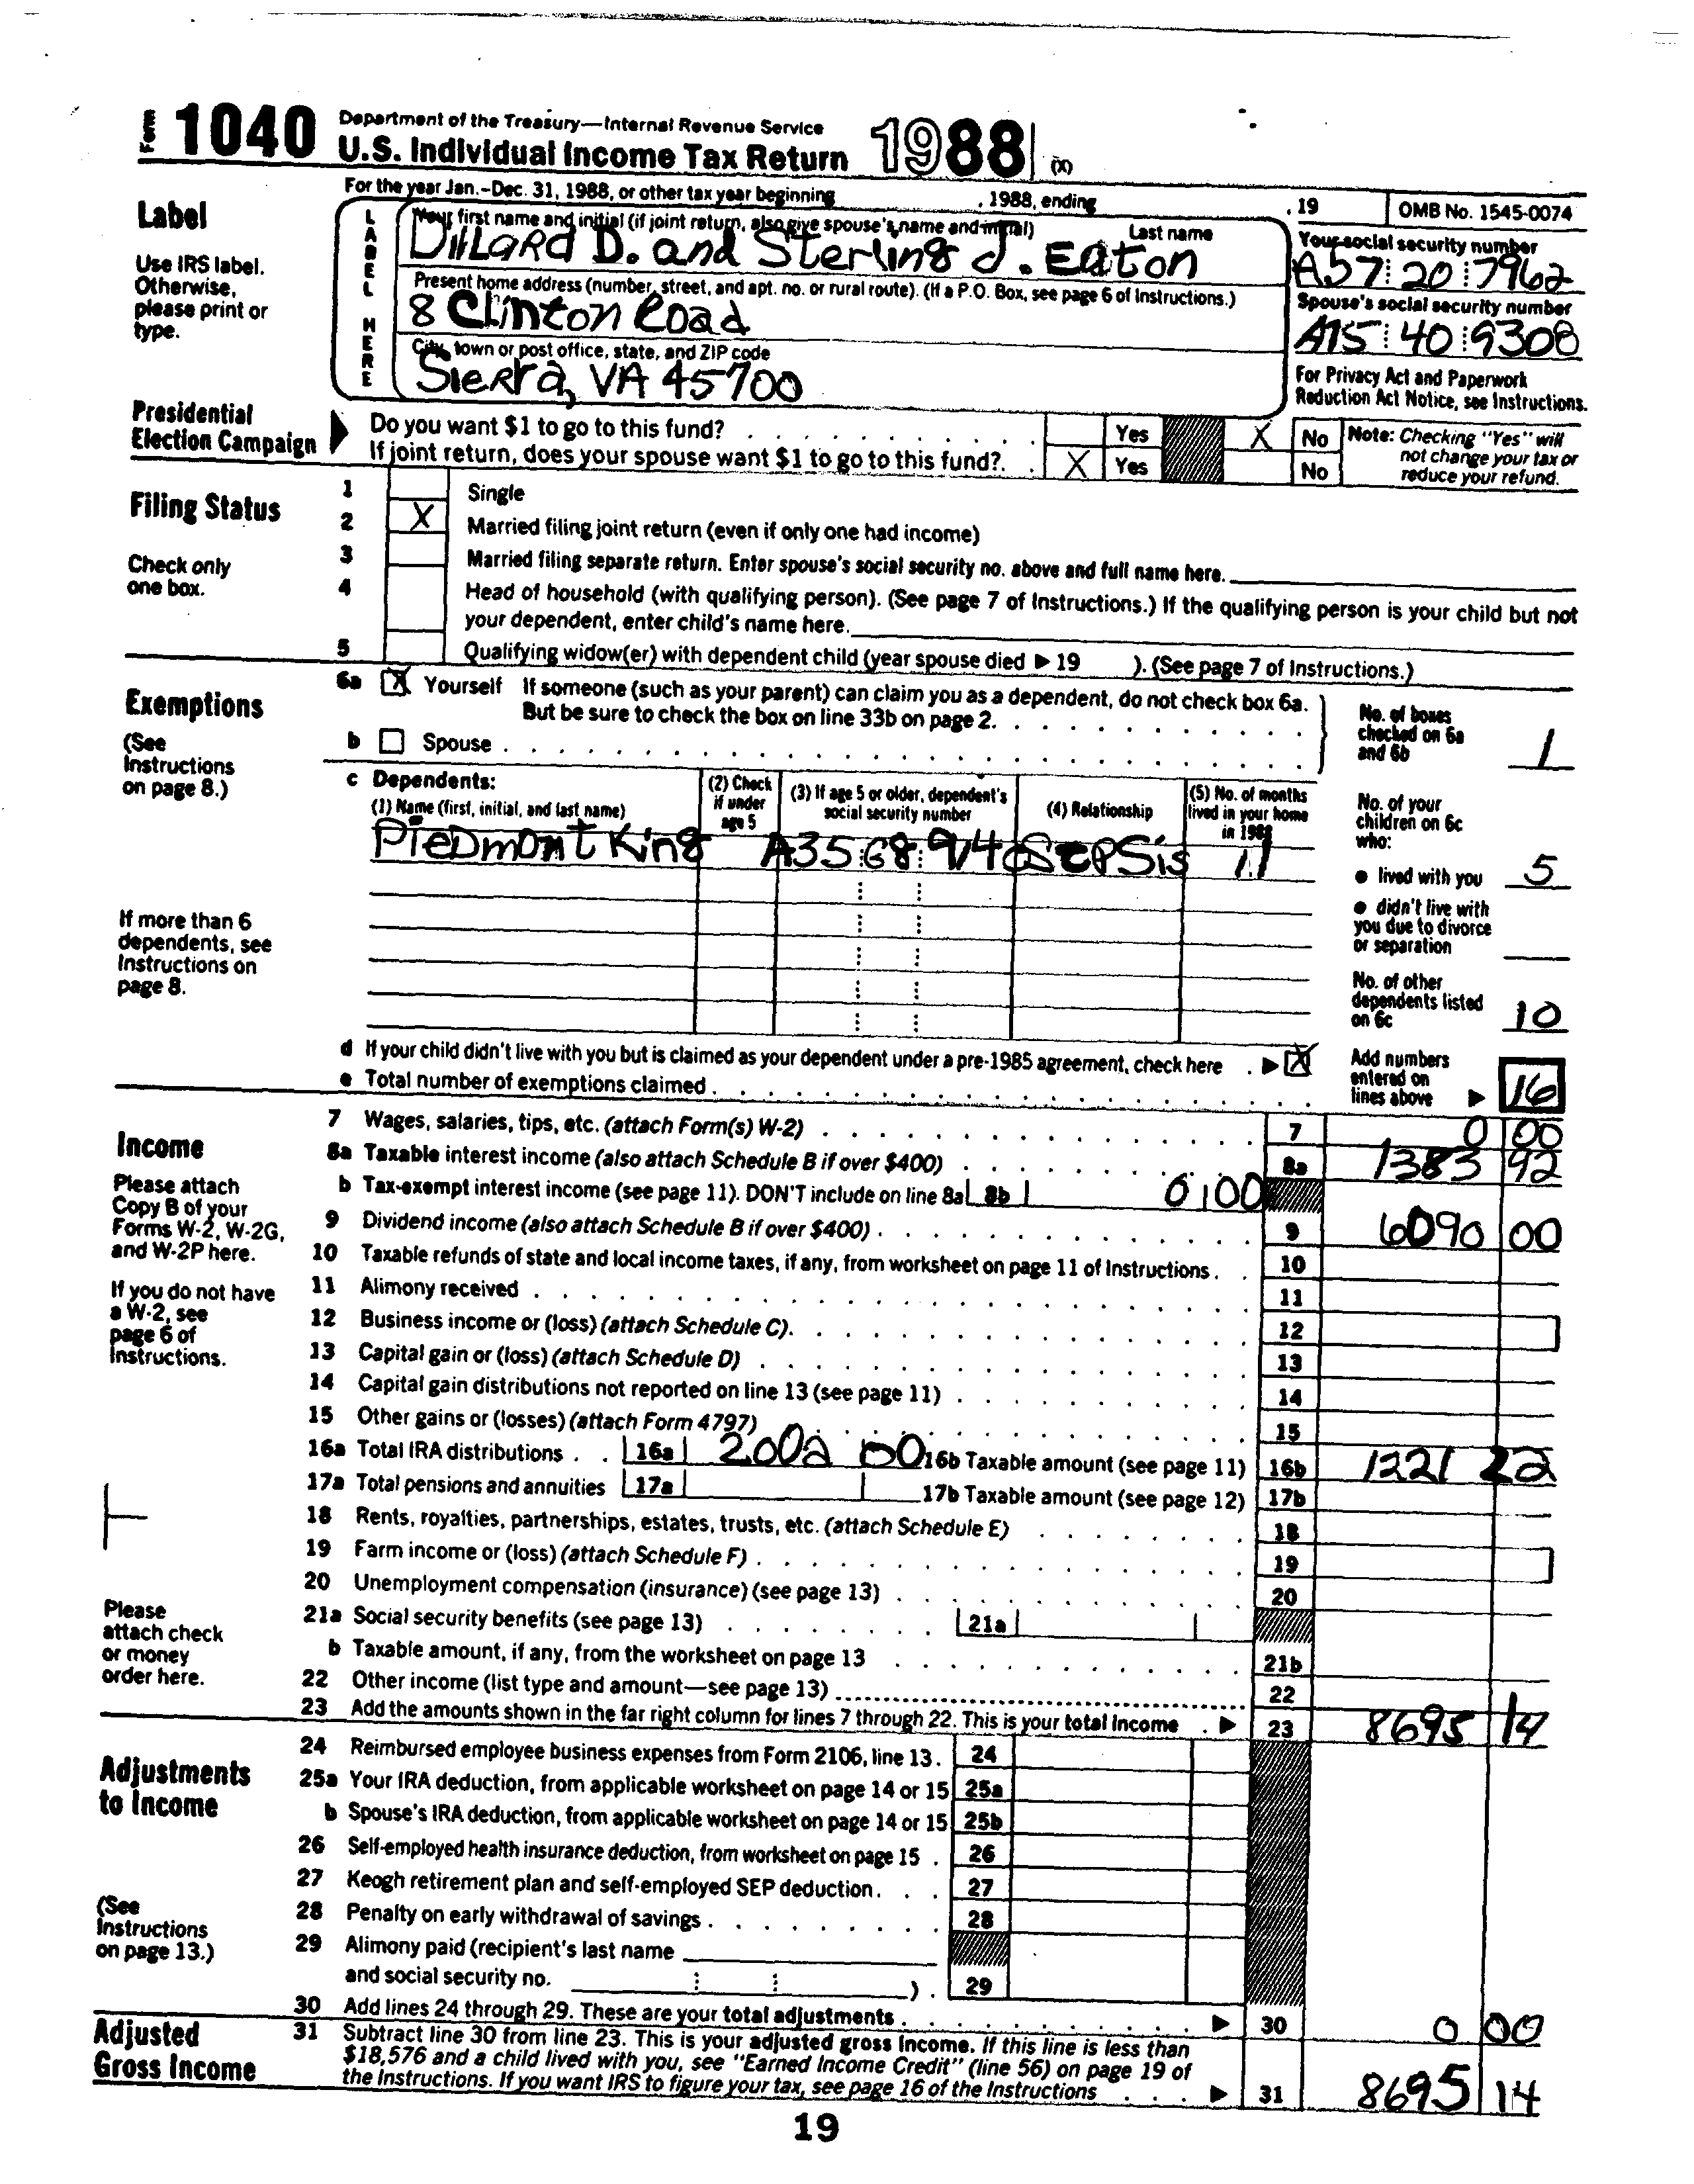 Form 1040 Department of the Treasury—Internal Revenue Service
U.S. Individual Income Tax Return 1988 (X)
For the year Jan.-Dec. 31, 1988, or other tax year beginning , 1988, ending , 19 OMB No. 1545-0074
Label
Use IRS label. Otherwise, please print or type.
LABEL HERE
Your first name and initial (if joint return, also give spouse's name and initial) Last name
Dillard D. and Sterling J. Eaton
Your social security number
A57 20 7962
Present home address (number, street, and apt. no. or rural route). (If a P.O. Box, see page 6 of Instructions.)
8 Clinton Road
Spouse's social security number
A15 40 9308
City, town or post office, state, and ZIP code
Sierra, VA 45700
For Privacy Act and Paperwork Reduction Act Notice, see Instructions.
Presidential Election Campaign
Do you want $1 to go to this fund? Yes X No
If joint return, does your spouse want $1 to go to this fund?. X Yes No
Note: Checking "Yes" will not change your tax or reduce your refund.
Filing Status
Check only one box.
1 Single
2 X Married filing joint return (even if only one had income)
3 Married filing separate return. Enter spouse's social security no. above and full name here.
4 Head of household (with qualifying person). (See page 7 of Instructions.) If the qualifying person is your child but not
your dependent, enter child's name here.
5 Qualifying widow(er) with dependent child (year spouse died ▶ 19 ). (See page 7 of Instructions.)
Exemptions
(See Instructions on page 8.)
6a X Yourself If someone (such as your parent) can claim you as a dependent, do not check box 6a.
But be sure to check the box on line 33b on page 2.
b Spouse
No. of boxes checked on 6a and 6b 1
c Dependents:
(1) Name (first, initial, and last name)
(2) Check if under age 5
(3) If age 5 or older, dependent's social security number
(4) Relationship
(5) No. of months lived in your home in 1988
Piedmont King A35 68 9140 Sepsis 11
No. of your children on 6c who:
● lived with you 5
● didn't live with you due to divorce or separation
No. of other dependents listed on 6c 10
If more than 6 dependents, see Instructions on page 8.
d If your child didn't live with you but is claimed as your dependent under a pre-1985 agreement, check here ▶ X
e Total number of exemptions claimed
Add numbers entered on lines above ▶ 16
Income
Please attach Copy B of your Forms W-2, W-2G, and W-2P here.
If you do not have a W-2, see page 6 of Instructions.
Please attach check or money order here.
7 Wages, salaries, tips, etc. (attach Form(s) W-2) 7 0 00
8a Taxable interest income (also attach Schedule B if over $400) 8a 1383 92
b Tax-exempt interest income (see page 11). DON'T include on line 8a 8b 0 00
9 Dividend income (also attach Schedule B if over $400) 9 6090 00
10 Taxable refunds of state and local income taxes, if any, from worksheet on page 11 of Instructions. 10
11 Alimony received 11
12 Business income or (loss) (attach Schedule C). 12
13 Capital gain or (loss) (attach Schedule D) 13
14 Capital gain distributions not reported on line 13 (see page 11) 14
15 Other gains or (losses) (attach Form 4797) 15
16a Total IRA distributions 16a 2002 00 16b Taxable amount (see page 11) 16b 1221 22
17a Total pensions and annuities 17a 17b Taxable amount (see page 12) 17b
18 Rents, royalties, partnerships, estates, trusts, etc. (attach Schedule E) 18
19 Farm income or (loss) (attach Schedule F) 19
20 Unemployment compensation (insurance) (see page 13) 20
21a Social security benefits (see page 13) 21a
b Taxable amount, if any, from the worksheet on page 13 21b
22 Other income (list type and amount—see page 13) 22
23 Add the amounts shown in the far right column for lines 7 through 22. This is your total income ▶ 23 8695 14
Adjustments to Income
(See Instructions on page 13.)
24 Reimbursed employee business expenses from Form 2106, line 13. 24
25a Your IRA deduction, from applicable worksheet on page 14 or 15 25a
b Spouse's IRA deduction, from applicable worksheet on page 14 or 15 25b
26 Self-employed health insurance deduction, from worksheet on page 15 . 26
27 Keogh retirement plan and self-employed SEP deduction. 27
28 Penalty on early withdrawal of savings 28
29 Alimony paid (recipient's last name
and social security no. ) . 29
30 Add lines 24 through 29. These are your total adjustments ▶ 30 0 00
Adjusted Gross Income
31 Subtract line 30 from line 23. This is your adjusted gross income. If this line is less than
$18,576 and a child lived with you, see "Earned Income Credit" (line 56) on page 19 of
the Instructions. If you want IRS to figure your tax, see page 16 of the Instructions ▶ 31 8695 14
19